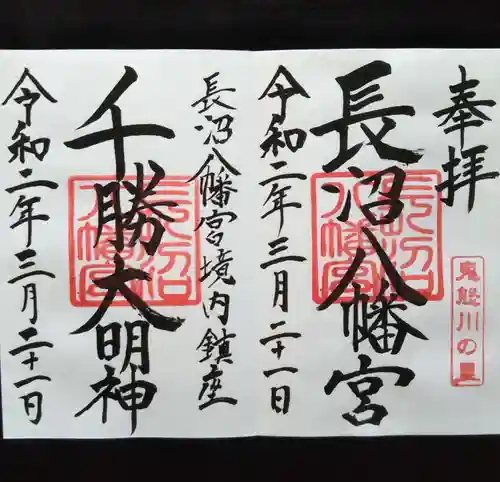 奉拝
長沼八幡宮
長沼八幡宮
鬼怒川の里
令和二年三月二十一日
長沼八幡宮境内鎮座
千勝大明神
長沼八幡宮
令和二年三月二十一日